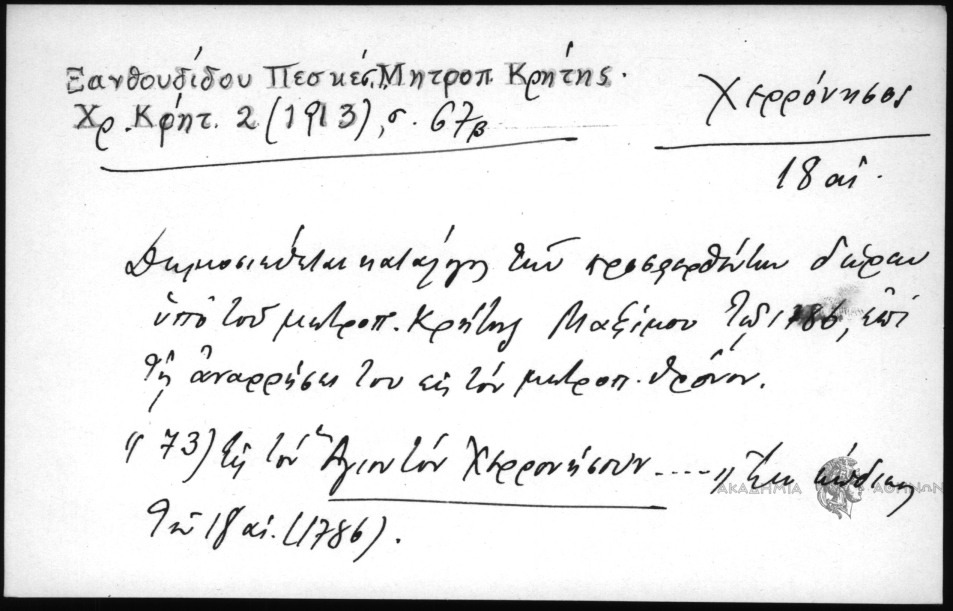 Ξανθουδίδου Πεσκέσ. Μητροπ. Κρήτης.
Χρ. Κρήτ. 2 (1913), σ. 67β
Χερρόνησος
18 αἰ.
Δημοσιεύεται κατάλογος τῶν προσφερθέντων δώρων
ὑπὸ τοῦ μητροπ. Κρήτης Μαξίμου τῷ 1786, ἐπὶ
τῇ ἀναρρήσει του εἰς τὸν μητροπ. θρόνον.
"73) Εἰς τὸν Ἅγιον τὸν Χερρονήσου ....."
τοῦ 18 αἰ. (1786).
ΑΚΑΔΗΜΙΑ ΑΘΗΝΩΝ